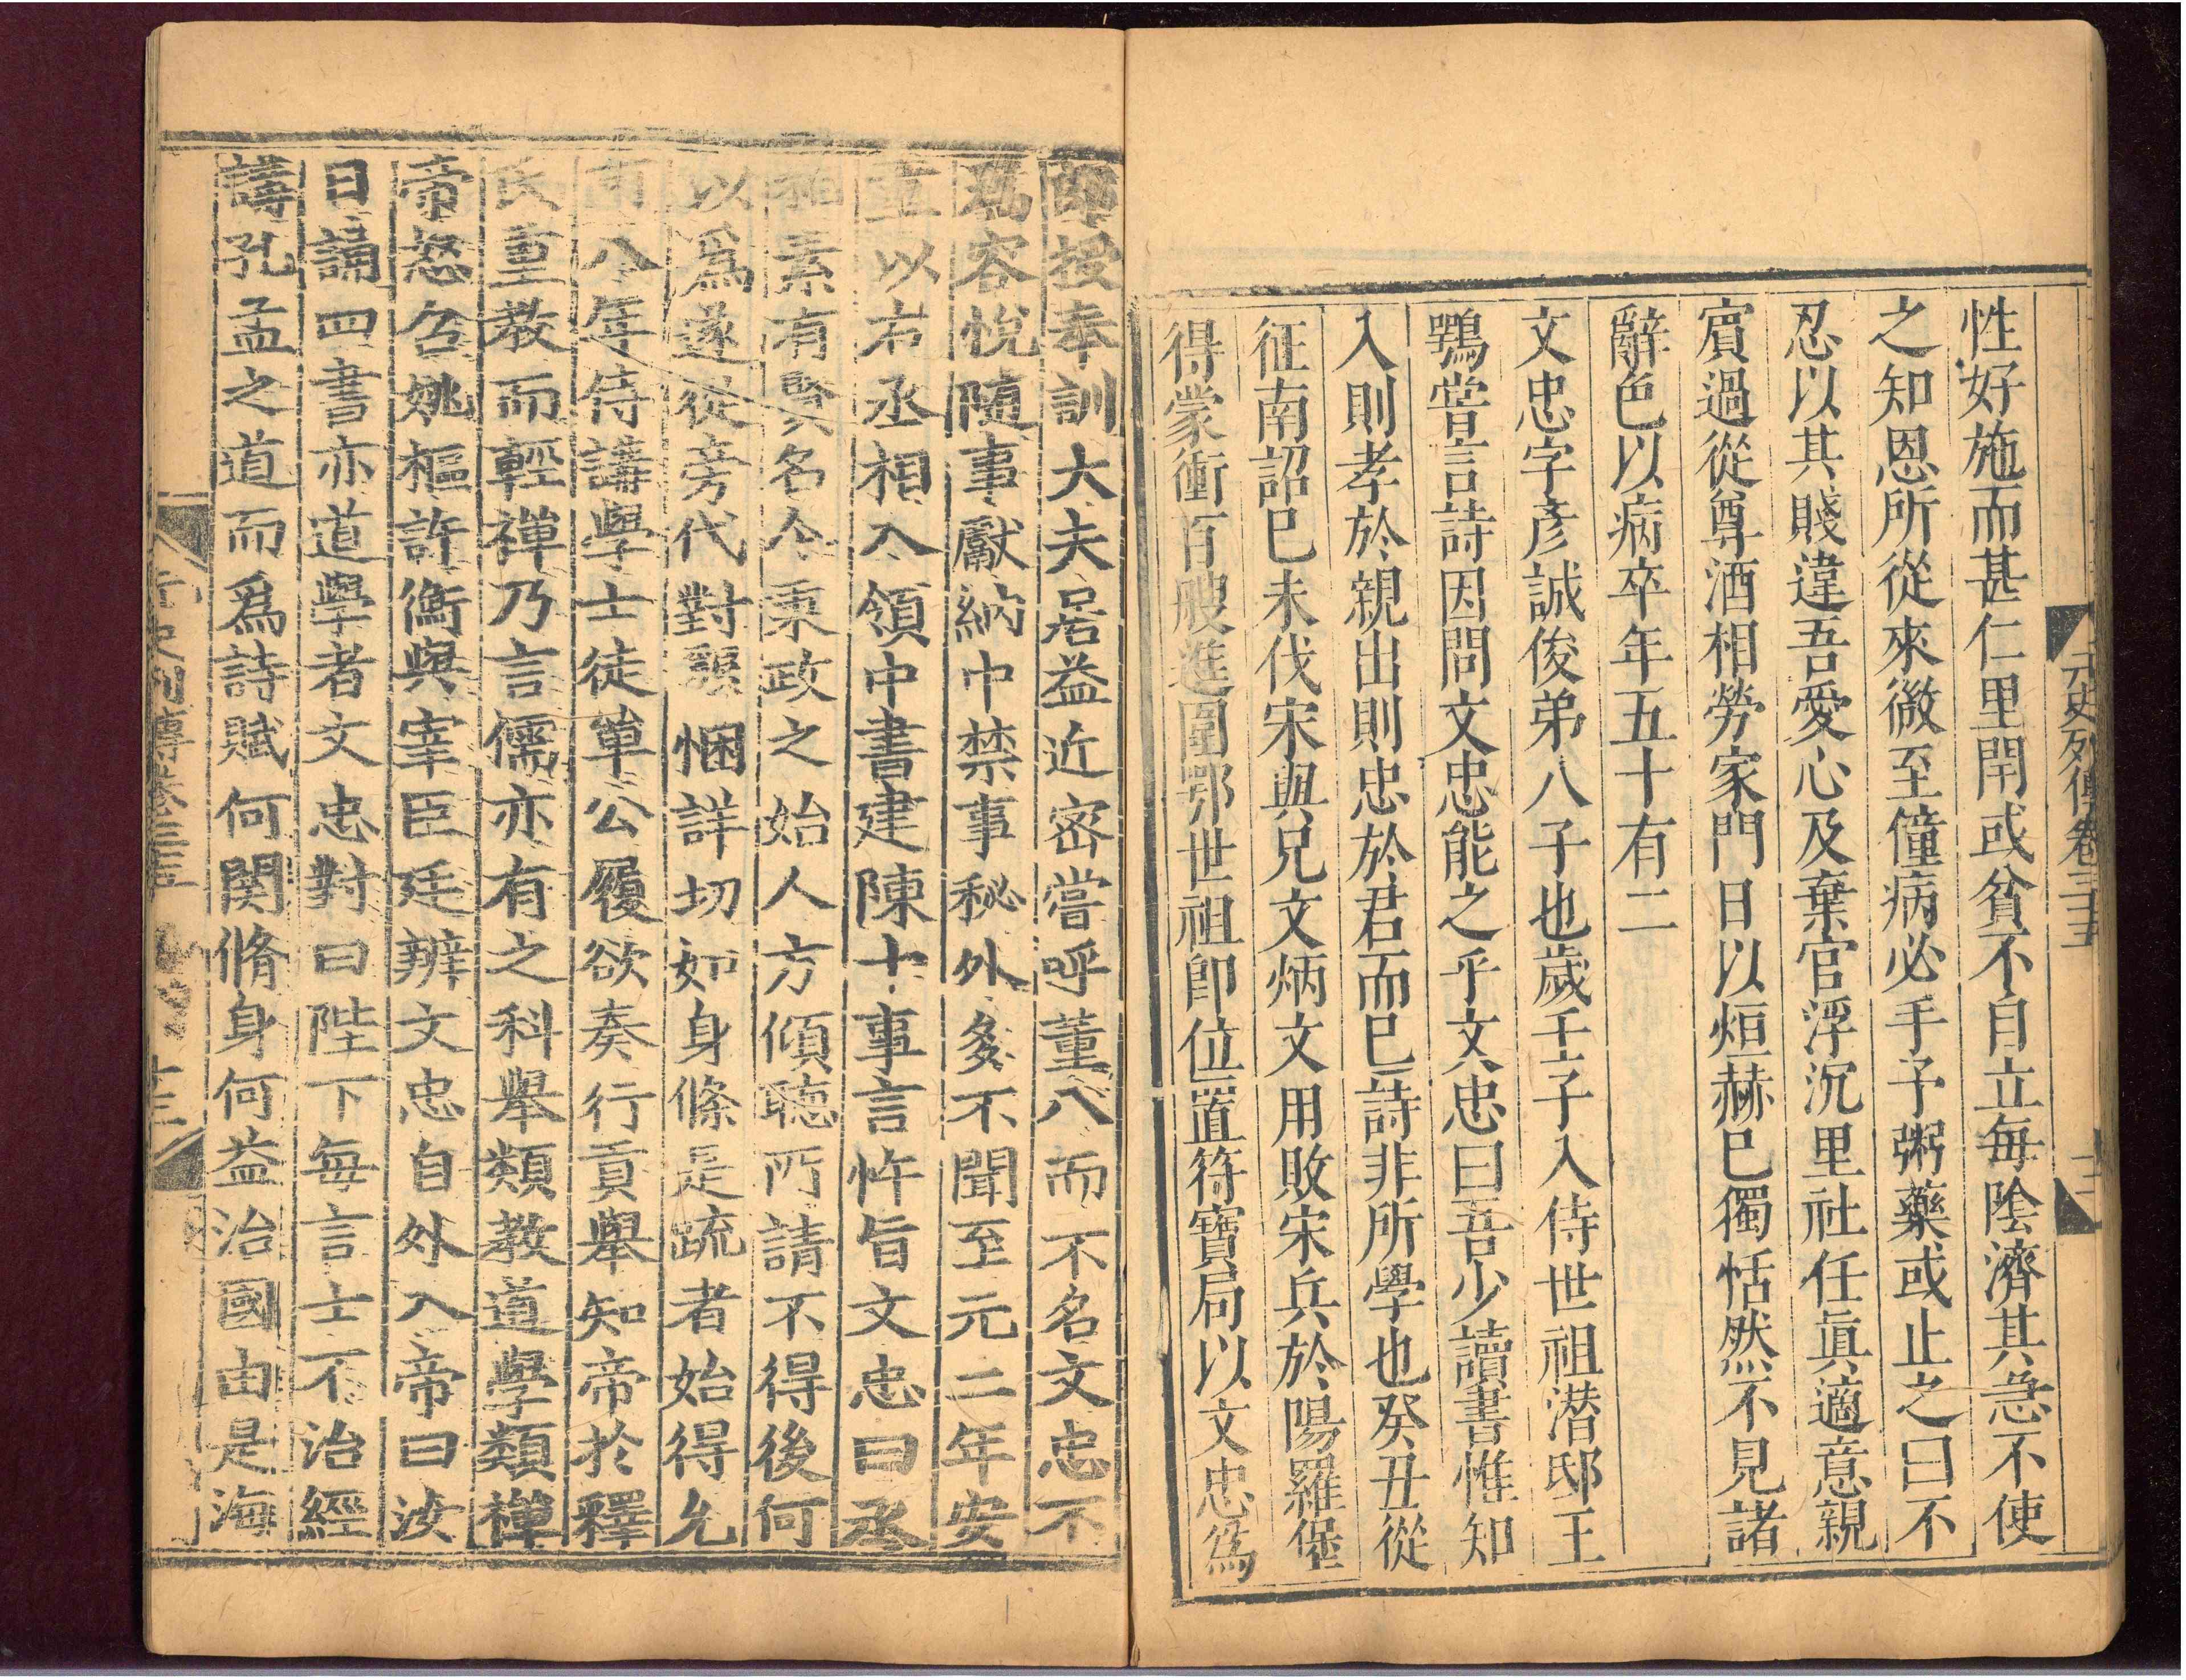 元史列傳卷三十五
十二
性好施而甚仁里閈或貧不自立每陰濟其急不使
之知恩所從來微至僮病必手予粥藥或止之曰不
忍以其賤違吾愛心及棄官浮沉里社任眞適意親
賓過從尊酒相勞家門日以烜赫巳獨恬然不見諸
辭色以病卒年五十有二
文忠字彥誠俊弟八子也歲壬子入侍世祖潜邸王
鶚嘗言詩因問文忠能之乎文忠曰吾少讀書惟知
入則孝於親出則忠於君而巳詩非所學也癸丑從
征南詔巳未伐宋與兄文炳文用敗宋兵於陽羅堡
得蒙衝百艘進圍鄂世祖卽位置符寶局以文忠爲
郎授奉訓大夫居益近密嘗呼董八而不名文忠不
爲容悅隨事獻納中禁事秘外多不聞至元二年安
童以右丞相入領中書建陳十事言忤旨文忠曰丞
相素有賢名今秉政之始人方傾聽所請不得後何
以爲遂從旁代對懇悃詳切如身條是疏者始得允
可八年侍講學士徒單公履欲奏行貢舉知帝於釋
氏重教而輕禪乃言儒亦有之科舉類教道學類禪
帝怒召姚樞許衡與宰臣廷辨文忠自外入帝曰汝
日誦四書亦道學者文忠對曰陛下每言士不治經
講孔孟之道而爲詩賦何関脩身何益治國由是海
元史列傳卷三十五
十三